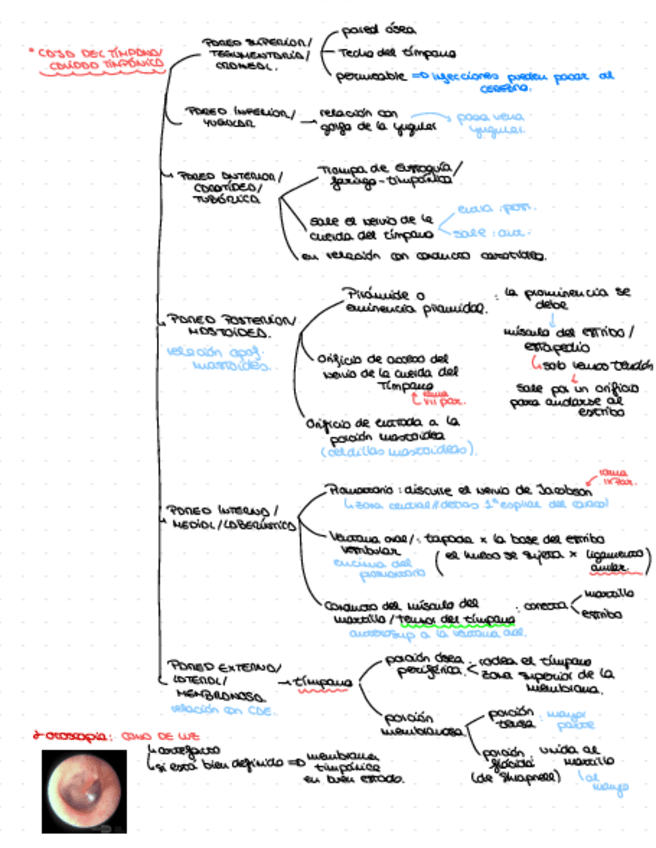 * CAJA DEL TÍMPANO/
CUIDADO TIMPÁNICO
PARED SUPERIOR/
TEGMENTARIA/
CRANEAL.
pared ósea
Techo del tímpano
permeable => infecciones pueden pasar al
cerebro.
PARED INFERIOR/
YUGULAR
relación con
golfo de la yugular
pasa vena
yugular.
PARED ANTERIOR/
CAROTÍDEA/
TUBÁRICA
Trompa de Eustaquio/
faringo-timpánica
sale el nervio de la
cuerda del tímpano
entra: post.
sale: ant.
en relación con conducto carotídeo.
PARED POSTERIOR/
MASTOIDEA.
relación apóf.
mastoides.
Pirámide o
eminencia piramidal.
: la prominencia se
debe
músculo del estribo/
estapedio
solo vemos tendón
sale por un orificio
para anclarse al
estribo
Orificio de acceso del
nervio de la cuerda del
Tímpano
rama
VII par.
Orificio de entrada a la
porción mastoidea
(celdillas mastoideas).
PARED INTERNA/
MEDIAL/LABERÍNTICA
Promontorio: discurre el nervio de Jacobson
rama
IX par.
zona central//detrás 1ª espiral del caracol
Ventana oval/
vestibular
: tapada x la base del estribo
(el hueso se sujeta x ligamento
anular.)
encima del
promontorio
Conducto del músculo del
martillo/tensor del tímpano
: conecta
martillo
estribo
anterosup a la ventana oval.
PARED EXTERNA/
LATERAL/
MEMBRANOSA
relación con CAE.
tímpano
porción ósea
periférica
: rodea el tímpano
zona superior de la
membrana.
porción
membranosa
porción
tensa
: mayor
parte
porción
flácida
(de Shrapnell)
: unida al
martillo
al
mango
otoscopia: CONO DE LUZ
artefacto
si está bien definido => membrana
timpánica
en buen estado.